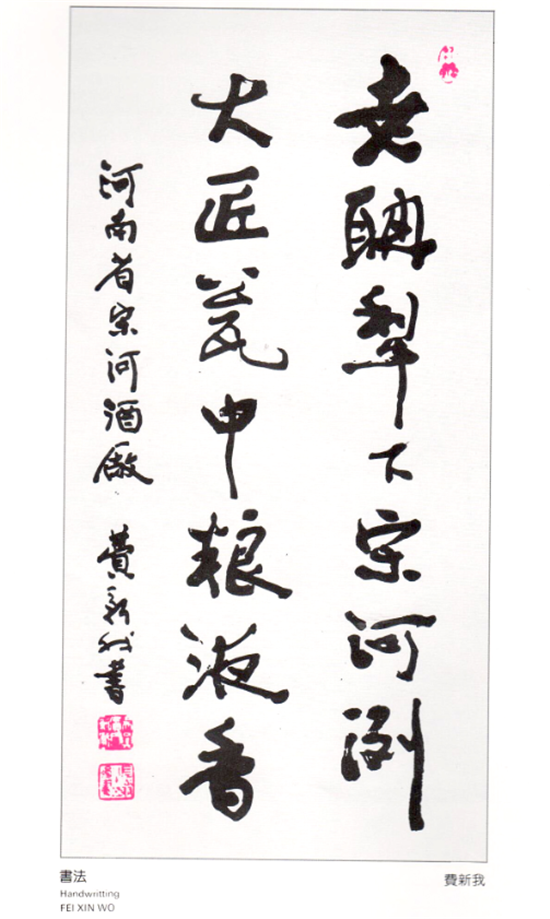 老聃犁下宗河洌
大匠瓮中粮液香
河南省宋河酒廠 費新我書
書法
Handwritting
FEI XIN WO
費新我